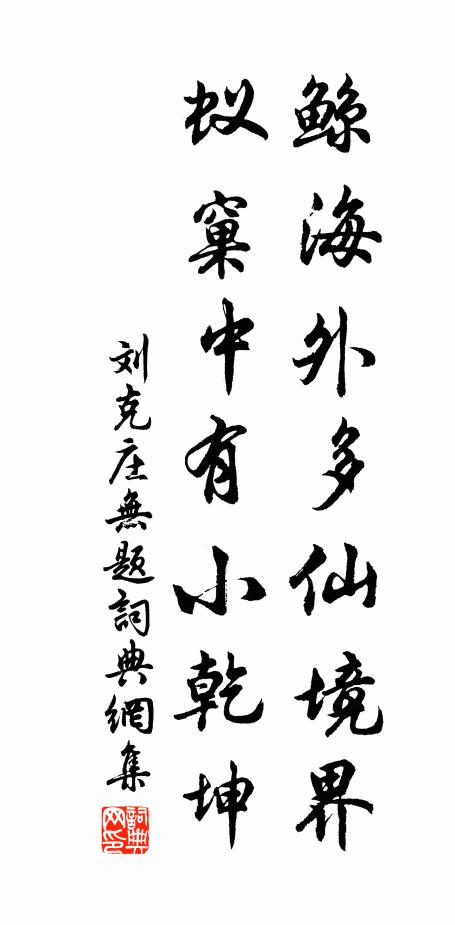 鲸海外多仙境界
蚁窠中有小乾坤
刘克庄無题詞典網集
詞典
网印